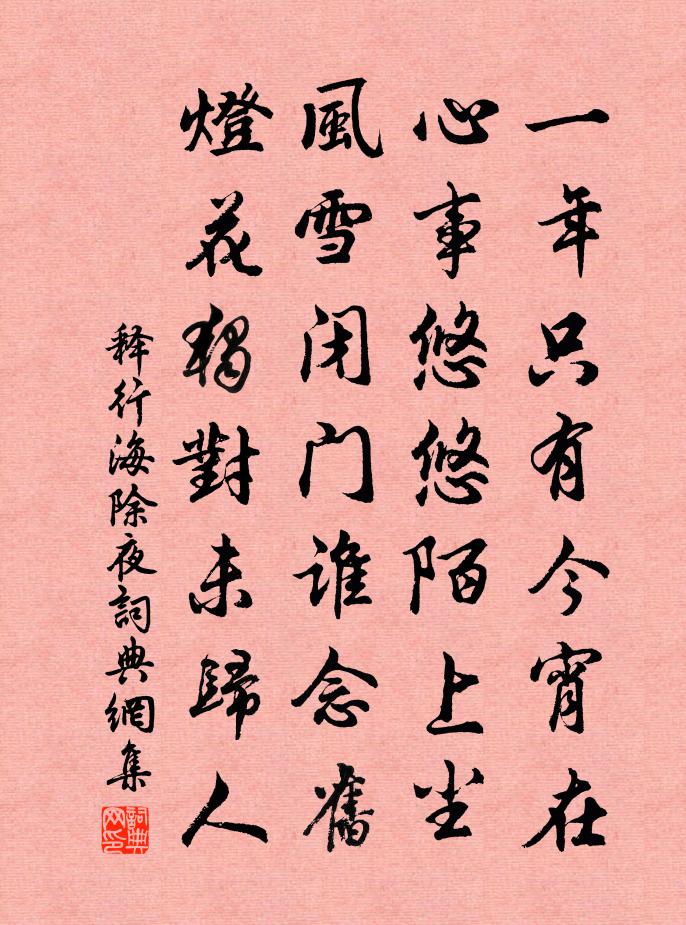 一年只有今宵在
心事悠悠陌上尘
風雪闭门谁念舊
燈花独對未歸人
释行海除夜詞典網集
詞典网印